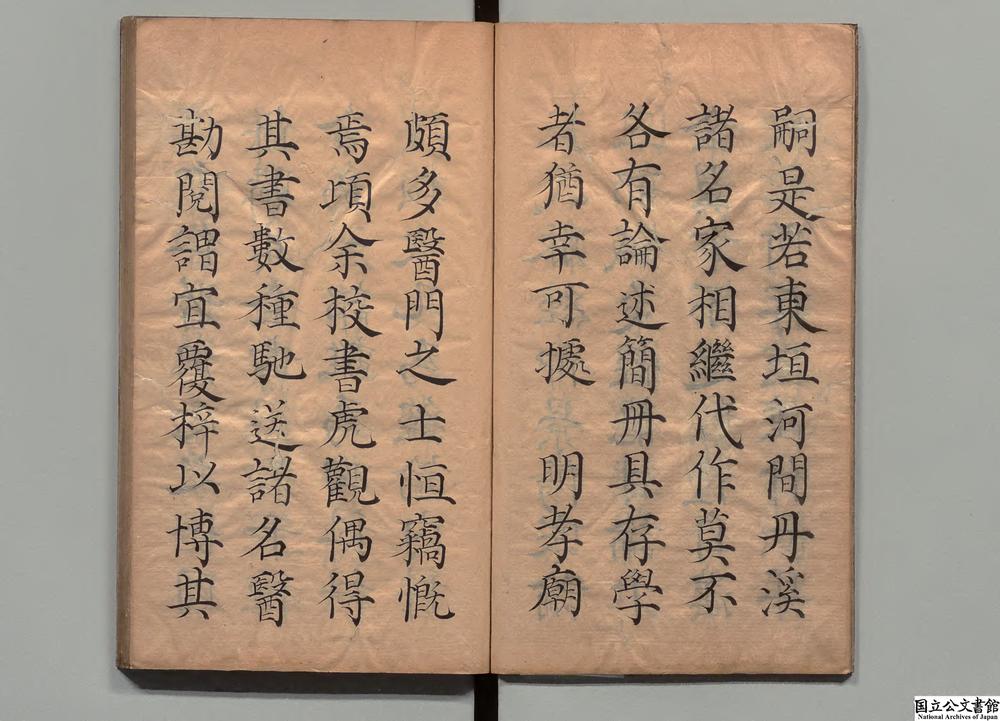 嗣是若東垣河間丹溪
諸名家相繼代作莫不
各有論述簡冊具存學
者猶幸可據 明孝廟
頗多醫門之士恒竊慨
焉頃余校書虎觀偶得
其書數種馳送諸名醫
勘閱謂宜覆梓以博其
国立公文書館
National Archives of Japan